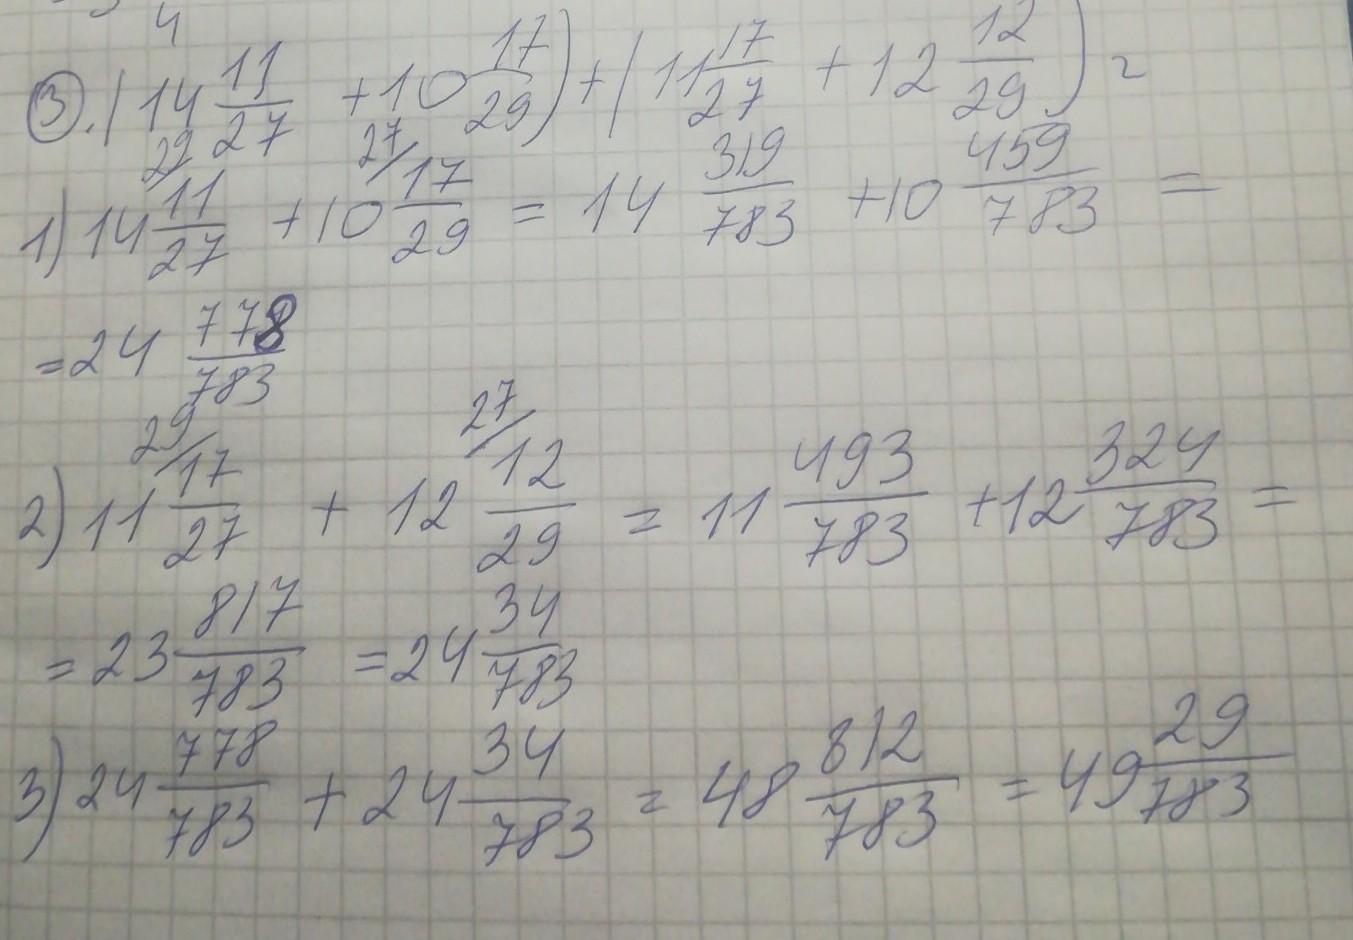 4
3. (14 11/27 + 10 17/29) + (11 17/27 + 12 12/29) =
29 27
1) 14 11/27 + 10 17/29 = 14 319/783 + 10 459/783 =
= 24 778/783
29 27
2) 11 17/27 + 12 12/29 = 11 493/783 + 12 324/783 =
= 23 817/783 = 24 34/783
3) 24 778/783 + 24 34/783 = 48 812/783 = 49 29/783